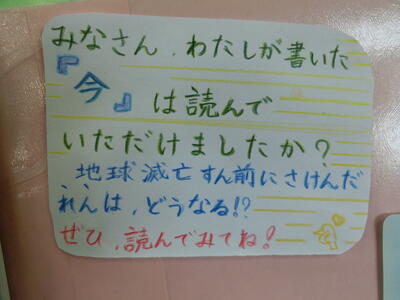 みなさん、わたしが書いた
『今』は読んで
いただけましたか?
地球滅亡すん前にさけんだ
れんは、どうなる!?
ぜひ、読んでみてね!